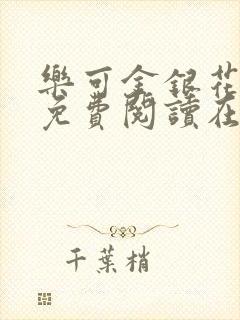 樂可金銀花
免費閱讀在
千葉梢